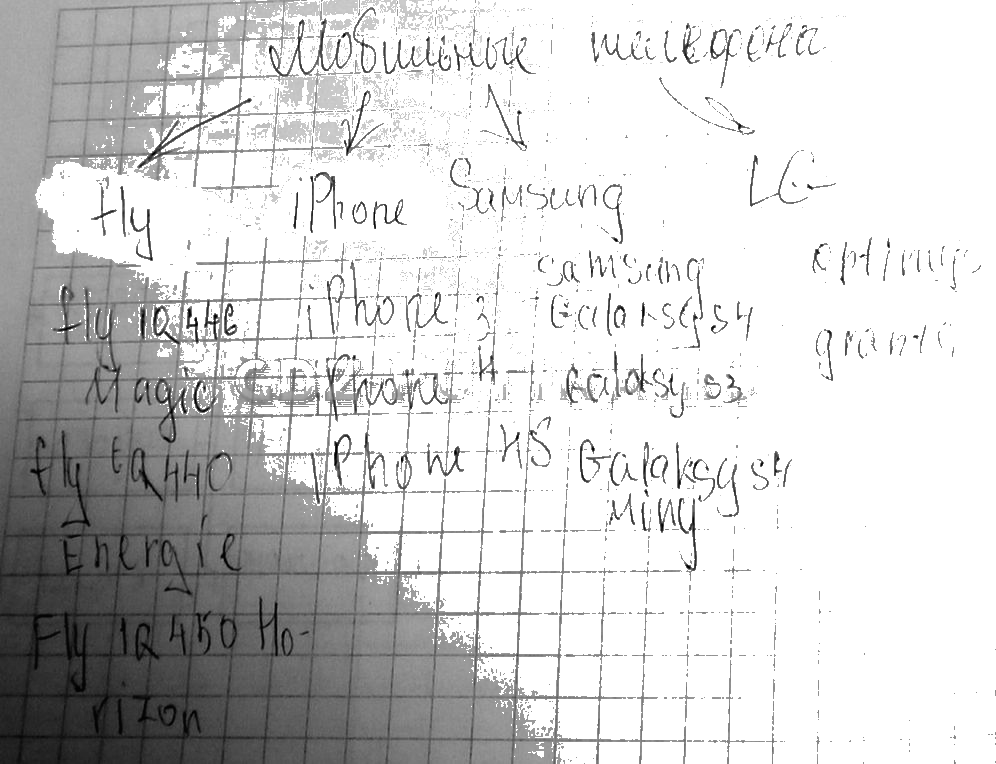 Мобильные телефоны
fly iPhone Samsung LG
fly IQ 446
Magic
fly IQ 440
Energie
Fly IQ 450 Ho-
rizon
iPhone 3
iPhone 4
iPhone 4S
Samsung
Galaksy S4
Galaksy S3
Galaksy S4
Miny
optimus